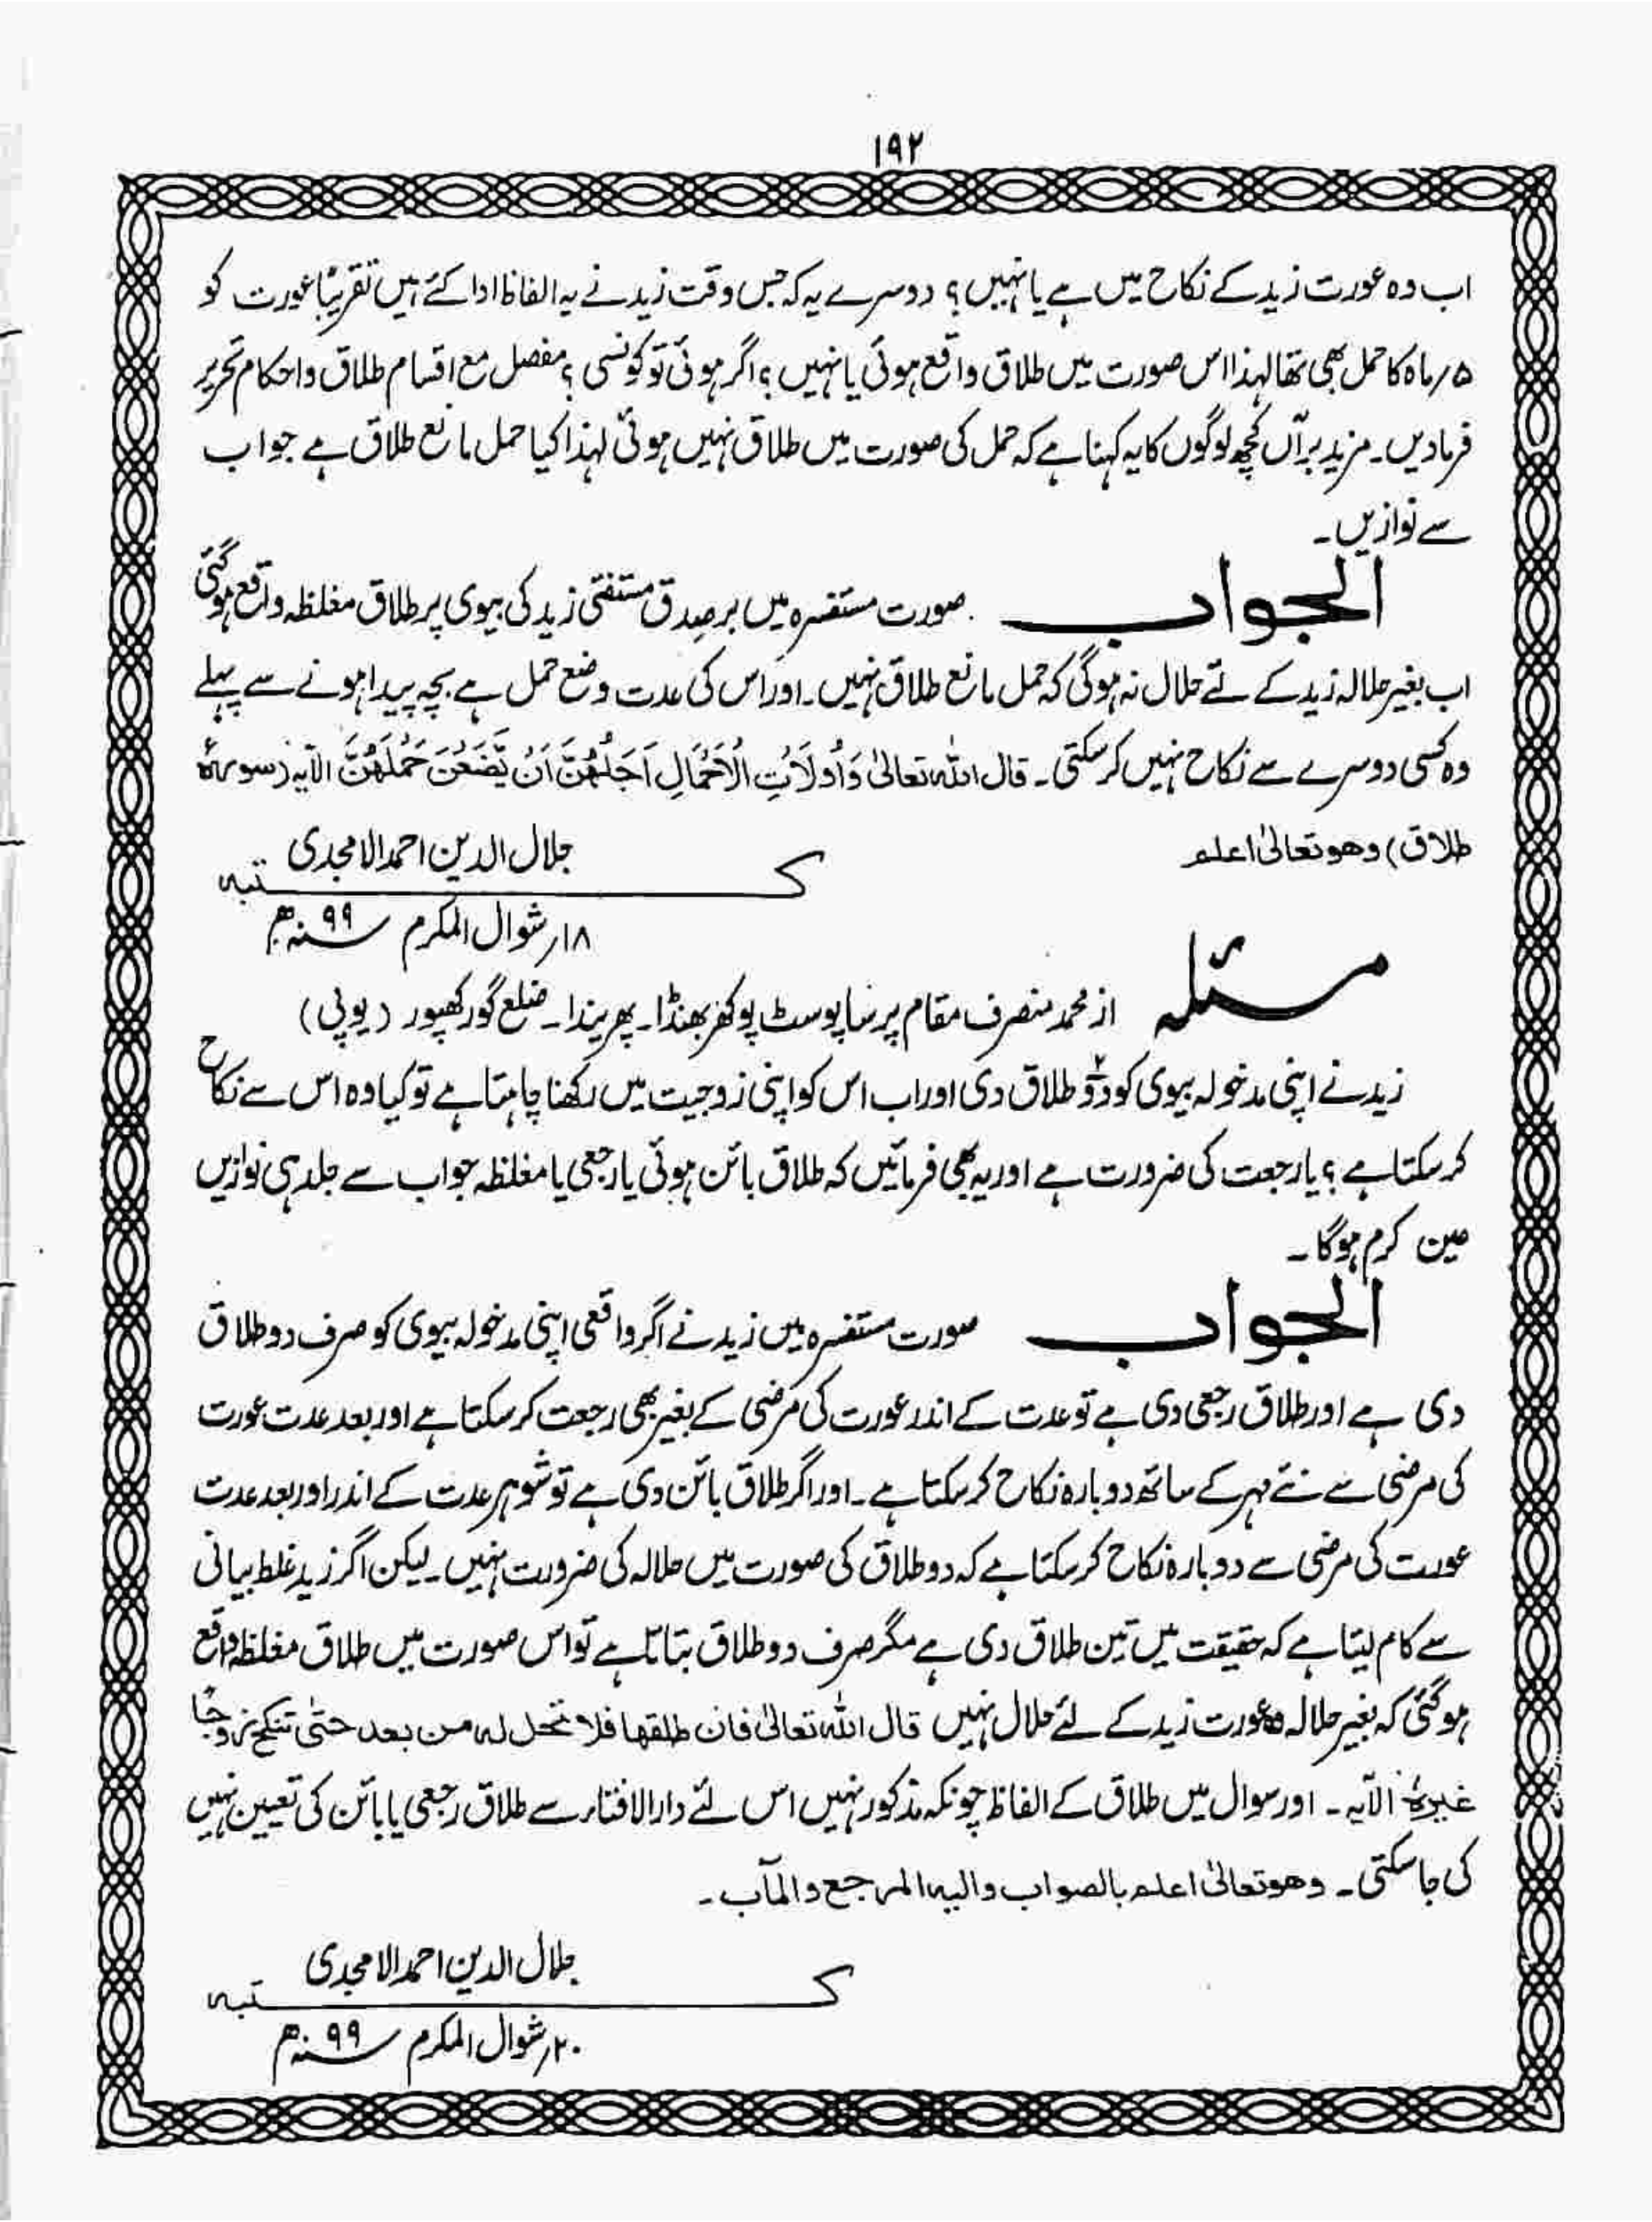 ۱۹۲
اب وہ عورت زید کے نکاح میں ہے یا نہیں؟ دوسرے یہ کہ جس وقت زید نے یہ الفاظ ادا کئے ہیں تقریباً عورت کو
۵/ماہ کا حمل بھی تھا لہذا اس صورت میں طلاق واقع ہوئی یا نہیں؟ اگر ہوئی تو کونسی؟ مفصل مع اقسام طلاق واحکام تحریر
فرمادیں۔ مزید برآں کچھ لوگوں کا یہ کہنا ہے کہ حمل کی صورت میں طلاق نہیں ہوئی لہذا کیا حمل مانع طلاق ہے جواب
سے نوازیں۔
الجواب صورت مستفسرہ میں بر صدق مستفتی زید کی بیوی پر طلاق مغلظہ واقع ہوگئی
اب بغیر حلالہ زید کے لئے حلال نہ ہوگی کہ حمل مانع طلاق نہیں۔ اور اس کی عدت وضع حمل ہے بچہ پیدا ہونے سے پہلے
وہ کسی دوسرے سے نکاح نہیں کر سکتی۔ قال اللہ تعالیٰ وَاُولَاتُ الْاَحْمَالِ اَجَلُهُنَّ اَنْ يَّضَعْنَ حَمْلَهُنَّ الآیہ (سورۂ
طلاق) وھو تعالیٰ اعلم
جلال الدین احمد الامجدی
کتبہ
۱۸/شوال المکرم ۹۹سنہ ھ
مسئلہ از محمد منصرف مقام پرسا پوسٹ پوکھر بھنڈا۔ پھریندا۔ ضلع گورکھپور (یوپی)
زید نے اپنی مدخولہ بیوی کو دو۲ طلاق دی اور اب اس کو اپنی زوجیت میں رکھنا چاہتا ہے تو کیا وہ اس سے نکاح
کرسکتا ہے؟ یا رجعت کی ضرورت ہے اور یہ بھی فرمائیں کہ طلاق بائن ہوئی یا رجعی یا مغلظہ جواب سے جلد ہی نوازیں
عین کرم ہوگا۔
الجواب صورت مستفسرہ میں زید نے اگر واقعی اپنی مدخولہ بیوی کو صرف دو طلاق
دی ہے اور طلاق رجعی دی ہے تو عدت کے اندر عورت کی مرضی کے بغیر بھی رجعت کر سکتا ہے اور بعد عدت عورت
کی مرضی سے نئے مہر کے ساتھ دوبارہ نکاح کر سکتا ہے۔ اور اگر طلاق بائن دی ہے تو شوہر عدت کے اندر اور بعد عدت
عورت کی مرضی سے دوبارہ نکاح کر سکتا ہے کہ دو طلاق کی صورت میں حلالہ کی ضرورت نہیں۔ لیکن اگر زید غلط بیانی
سے کام لیتا ہے کہ حقیقت میں تین طلاق دی ہے مگر صرف دو طلاق بتاتا ہے تو اس صورت میں طلاق مغلظہ واقع
ہوگئی کہ بغیر حلالہ وہ عورت زید کے لئے حلال نہیں قال اللہ تعالیٰ فان طلقها فلا تحل له من بعد حتى تنكح زوجًا
غیرہ الآیہ۔ اور سوال میں طلاق کے الفاظ چونکہ مذکور نہیں اس لئے دار الافتاء سے طلاق رجعی یا بائن کی تعیین نہیں
کی جا سکتی۔ وھو تعالیٰ اعلم بالصواب والیہ المرجع والمآب۔
جلال الدین احمد الامجدی
کتبہ
۲۰/شوال المکرم ۹۹سنہ ھ